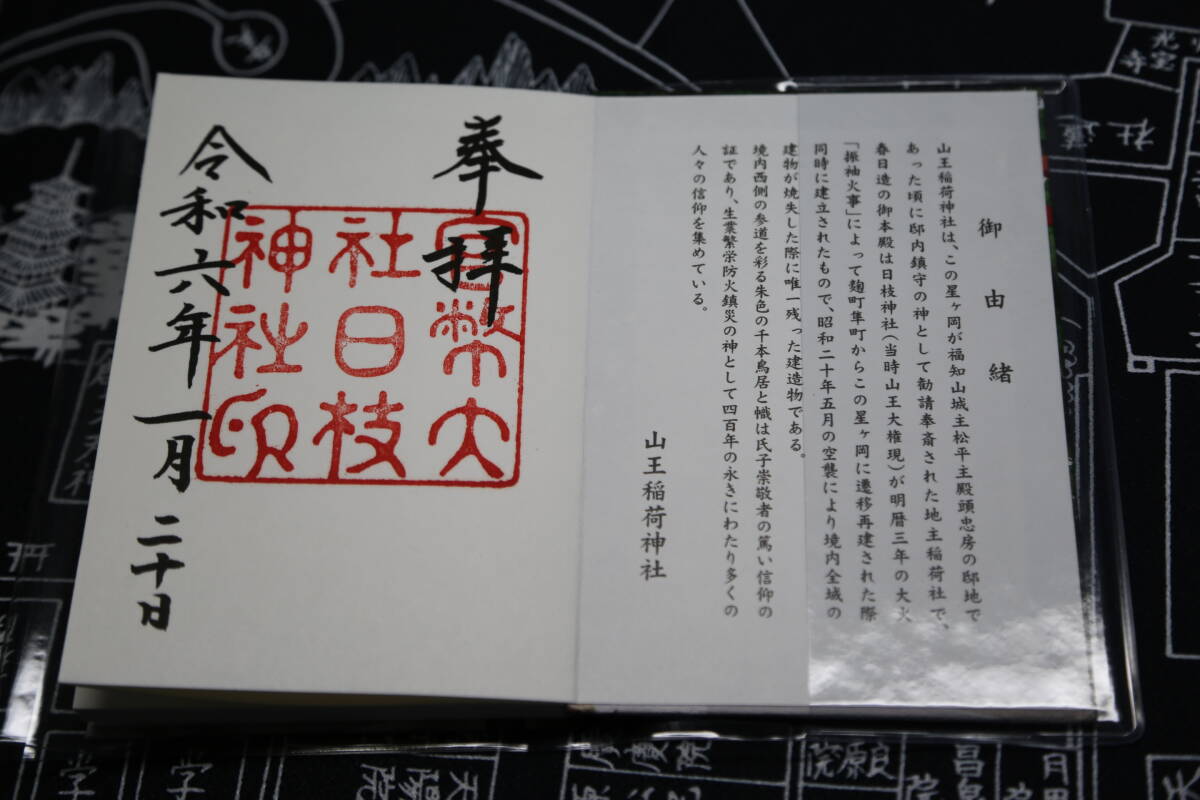 御由緒
山王稲荷神社は、この星ヶ岡が福知山城主松平主殿頭忠房の邸地で
あった頃に邸内鎮守の神として勧請奉斎された地主稲荷社で、
春日造の御本殿は日枝神社(当時山王大権現)が明暦三年の大火
「振袖火事」によって麹町隼町からこの星ヶ岡に遷移再建された際
同時に建立されたもので、昭和二十年五月の空襲により境内全域の
建物が焼失した際に唯一残った建造物である。
境内西側の参道を彩る朱色の千本鳥居と幟は氏子崇敬者の篤い信仰の
証であり、生業繁栄防火鎮災の神として四百年の永きにわたり多くの
人々の信仰を集めている。
山王稲荷神社
奉拝
官幣大
社日枝
神社印
令和六年一月二十日
光宝寺
社造
天陽院
院原良
昌
月田
学
学